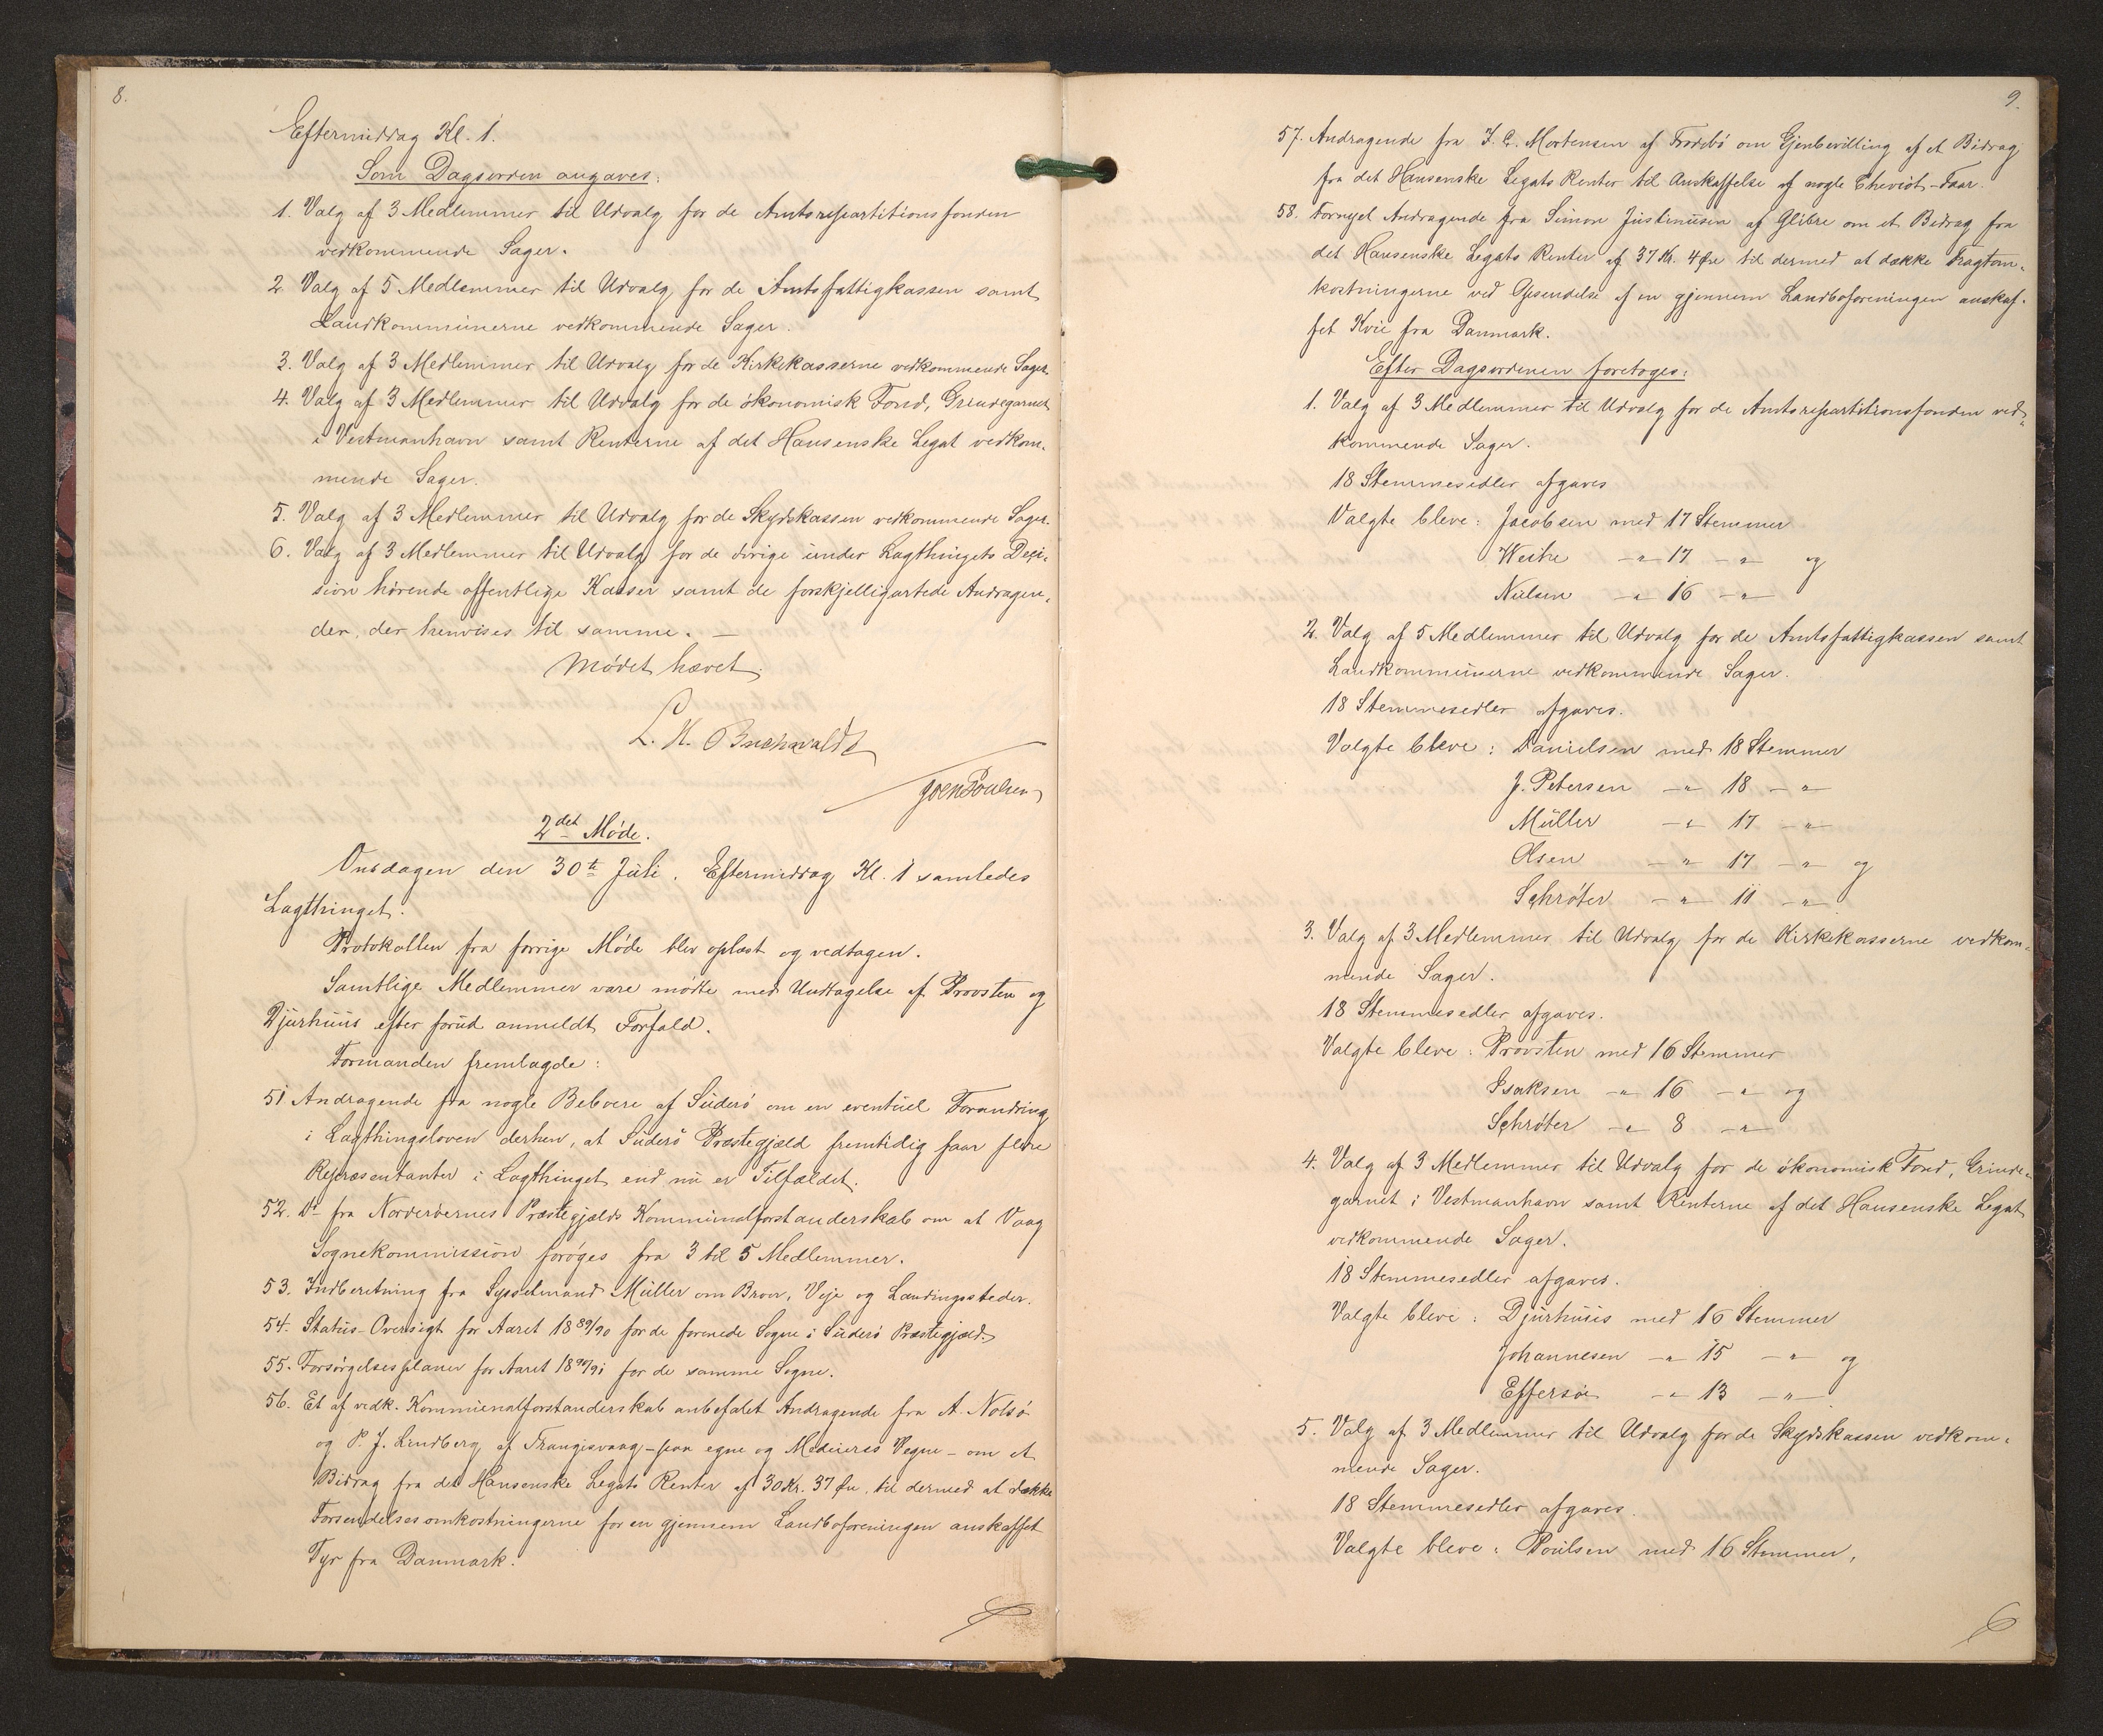 8.
Eftermiddag Kl. 1.
Som Dagsorden angaves:
1. Valg af 3 Medlemmer til Udvalg for de Amtsrepartitionsfonden
vedkommende Sager.
2. Valg af 5 Medlemmer til Udvalg for de Amtsfattigkassen samt
Landkommunerne vedkommende Sager.
3. Valg af 3 Medlemmer til Udvalg for de Kirkekasserne vedkommende Sager.
4. Valg af 3 Medlemmer til Udvalg for de økonomisk Fond, Grindegarnet
i Vestmanhavn samt Renterne af det Hansenske Legat vedkom-
mende Sager.
5. Valg af 3 Medlemmer til Udvalg for de Skydskassen vedkommende Sager.
6. Valg af 3 Medlemmer til Udvalg for de øvrige under Lagthingets Deci-
sion hørende offentlige Kasser samt de forskjelligartede Andragen-
der, der henvises til samme. —
Mødet hævet.
L. H. Buchwaldt
Joen Poulsen
2det Møde.
Onsdagen den 30te Juli. Eftermiddag Kl. 1 samledes
Lagthinget.
Protokollen fra forrige Møde blev oplæst og vedtagen.
Samtlige Medlemmer vare mødte med Undtagelse af Provsten og
Djurhuus efter forud anmeldt Forfald.
Formanden fremlagde:
51 Andragende fra nogle Beboere af Suderø om en eventuel Forandring
i Lagthingsloven derhen, at Suderø Præstegjæld fremtidig faar flere
Repræsentanter i Lagthinget end nu er Tilfældet.
52. Do fra Norderøernes Præstegjælds Kommunalforstanderskab om at Vaag
Sognekommission forøges fra 3 til 5 Medlemmer.
53. Indberetning fra Sysselmand Müller om Broer, Veje og Landingssteder.
54. Status-Oversigt for Aaret 1889/90 for de forenede Sogne i Suderø Præstegjæld.
55. Forsørgelsesplaner for Aaret 1890/91 for de samme Sogne.
56. Et af vedk. Kommunalforstanderskab anbefalet Andragende fra A. Nolsø
og P. J. Lindberg af Trangisvaag - paa egne og Medeieres Vegne - om et
Bidrag fra det Hansenske Legats Renter af 30 Kr. 37 Øre, til dermed at dække
Forsendelsesomkostningerne for en gjennem Landboforeningen anskaffet
Tyr fra Danmark.
9.
57. Andragende fra J. C. Mortensen af Frodebø om Gjenbevilling af et Bidrag
fra det Hansenske Legats Renter til Anskaffelse af nogle Cheviot-Faar.
58. Fornyet Andragende fra Simon Justinussen af Glibre om et Bidrag fra
det Hansenske Legats Renter af 37 Kr. 4 Øre til dermed at dække Fragtom-
kostningerne ved Opsendelse af en gjennem Landboforeningen anskaf-
fet Kvie fra Danmark.
Efter Dagsordenen foretoges:
1. Valg af 3 Medlemmer til Udvalg for de Amtsrepartitionsfonden ved-
kommende Sager.
18 Stemmesedler afgaves
Valgte bleve: Jacobsen med 17 Stemmer
Weihe —"— 17 —"— og
Nielsen —"— 16 —"—
2. Valg af 5 Medlemmer til Udvalg for de Amtsfattigkassen samt
Landkommunerne vedkommende Sager.
18 Stemmesedler afgaves.
Valgte bleve: Danielsen med 18 Stemmer
J. Petersen —"— 18 —"—
Müller —"— 17 —"—
Olsen —"— 17 —"— og
Schrøter —"— 11 —"—
3. Valg af 3 Medlemmer til Udvalg for de Kirkekasserne vedkom-
mende Sager.
18 Stemmesedler afgaves.
Valgte bleve: Provsten med 16 Stemmer
Isaksen —"— 16 —"— og
Schrøter —"— 8 —"—
4. Valg af 3 Medlemmer til Udvalg for de økonomisk Fond, Grinde-
garnet i Vestmanhavn samt Renterne af det Hansenske Legat
vedkommende Sager.
18 Stemmesedler afgaves.
Valgte bleve: Djurhuus med 16 Stemmer
Johannesen —"— 15 —"— og
Effersøe —"— 13 —"—
5. Valg af 3 Medlemmer til Udvalg for de Skydskassen vedkom-
mende Sager.
18 Stemmesedler afgaves.
Valgte bleve: Poulsen med 16 Stemmer,